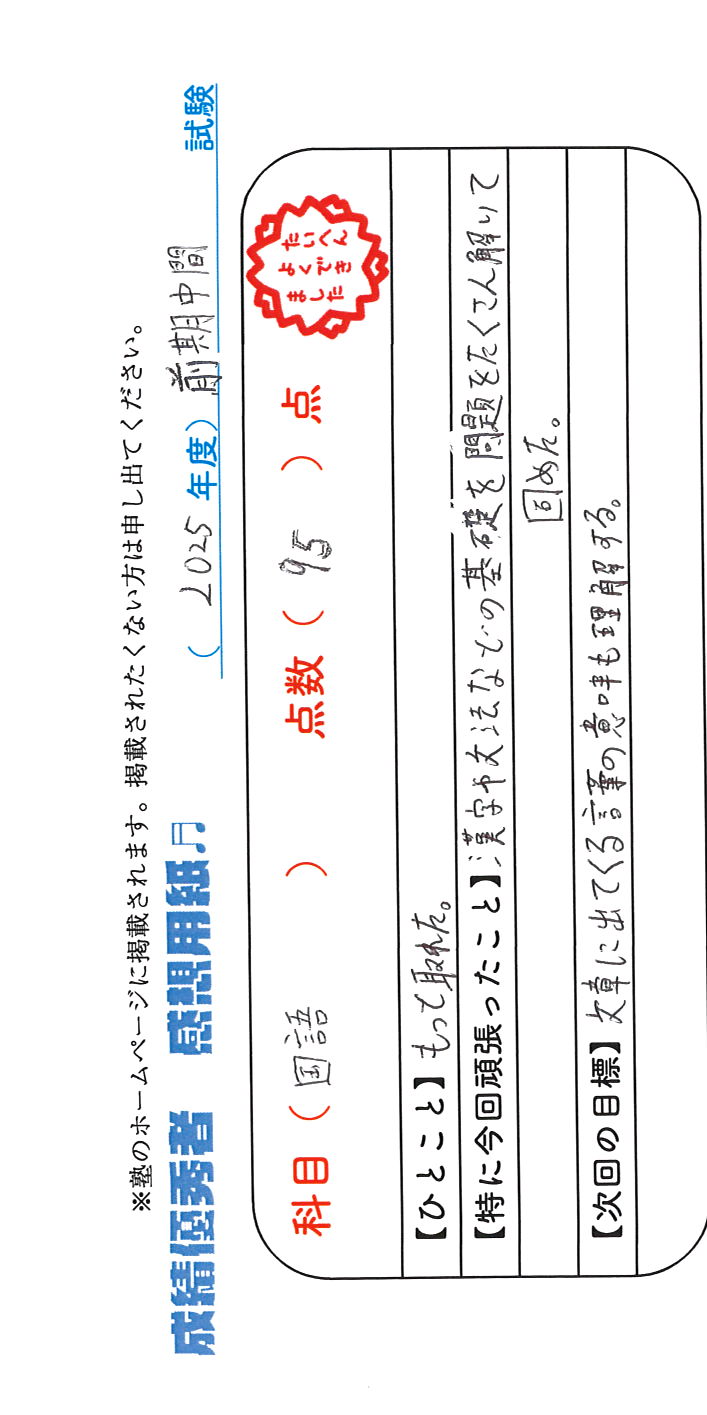 ※塾のホームページに掲載されます。掲載されたくない方は申し出てください。
成績優秀者 感想用紙♬ (2025年度) 前期中間 試験
科目(国語) 点数(95)点
たいへん
よくでき
ました
【ひとこと】もって取れた。
【特に今回頑張ったこと】漢字や文法などの基礎を問題をたくさん解いて
固めた。
【次回の目標】文章に出てくる言葉の意味も理解する。